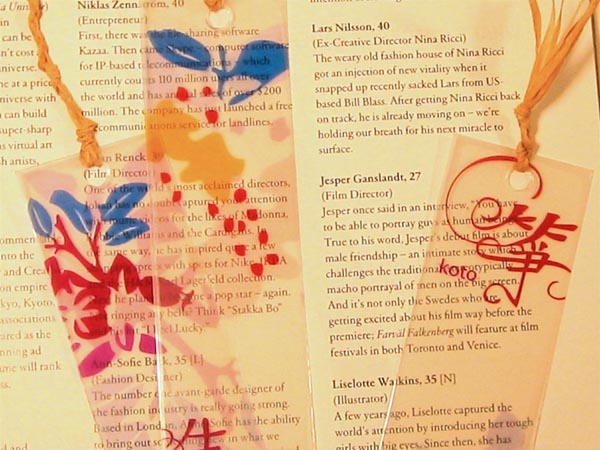 can be
niverse.
at a price
niverse with
can build
super-sharp
s virtual art
artists,
nto the
Kyoto,
ssociations
ared as the
nning ad
will rank
Niklas Zennström, 40
(Entrepreneur)
First, there was the file-sharing software
Kazaa. Then came Skype – computer software
for IP-based telecommunications – which
currently counts 110 million users all over
the world and has annual sales of over $200
million. The company has just launched a free
communications service for landlines.
Johan Renck, 39
(Film Director)
One of the world's most acclaimed directors,
Johan has no doubt captured your attention
with music videos for the likes of Madonna,
Robbie Williams and the Cardigans. In
the same way, he has inspired quite a few
with spots for Nike,
and the Karl Lagerfeld collection.
And he plans to become a pop star – again.
ringing any bells? Think "Stakka Bo"
and his "Feel Lucky."
Ann-Sofie Back, 35 [L]
(Fashion Designer)
The number one avant-garde designer of
the fashion industry is really going strong.
Based in London, Ann-Sofie has the ability
to bring out something new in what we
Lars Nilsson, 40
(Ex-Creative Director Nina Ricci)
The weary old fashion house of Nina Ricci
got an injection of new vitality when it
snapped up recently sacked Lars from US-
based Bill Blass. After getting Nina Ricci back
on track, he is already moving on – we're
holding our breath for his next miracle to
surface.
Jesper Ganslandt, 27
(Film Director)
Jesper once said in an interview, "You have
to be able to portray guys as human beings."
True to his word, Jesper's debut film is about
male friendship – an intimate story which
challenges the traditional stereotypically
macho portrayal of men on the big screen.
And it's not only the Swedes who are
getting excited about his film way before the
premiere; Farväl Falkenberg will feature at film
festivals in both Toronto and Venice.
Liselotte Watkins, 35 [N]
(Illustrator)
A few years ago, Liselotte captured the
world's attention by introducing her tough
girls with big eyes. Since then, she has
箏
koto